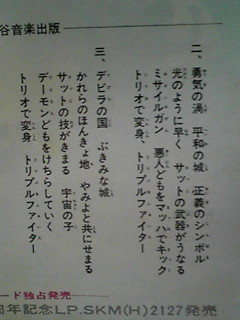 谷音楽出版
二、勇気の渦　平和の城　正義のシンボル
光のように早く　サットの武器がうなる
ミサイルガン　悪人どもをマッハでキック
トリオで変身、トリプルファイター
三、デビラの国　ぶきみな城
かれらのほんきょ地　やみよと共にせまる
サットの技がきまる　宇宙の子
デーモンどもをけちらしていく
トリオで変身　トリプルファイター
ード独占発売
周年記念LP.SKM(H)2127発売